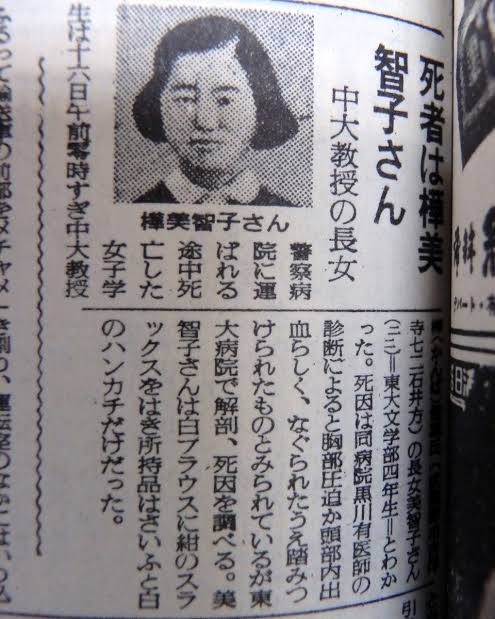 死者は樺美
智子さん
中大教授の長女
樺美智子さん
警察病
院に運
ばれる
途中死
亡した
女子学
生は十六日午前零時すぎ中大教授
寺七二石井方)の長女美智子さん
(二二)=東大文学部四年生=とわか
った。死因は同病院黒川有医師の
診断によると胸部圧迫か頭部内出
血らしく、なぐられたうえ踏みつ
けられたものとみられているが東
大病院で解剖、死因を調べる。美
智子さんは白ブラウスに紺のスラ
ックスをはき所持品はさいふと白
のハンカチだけだった。